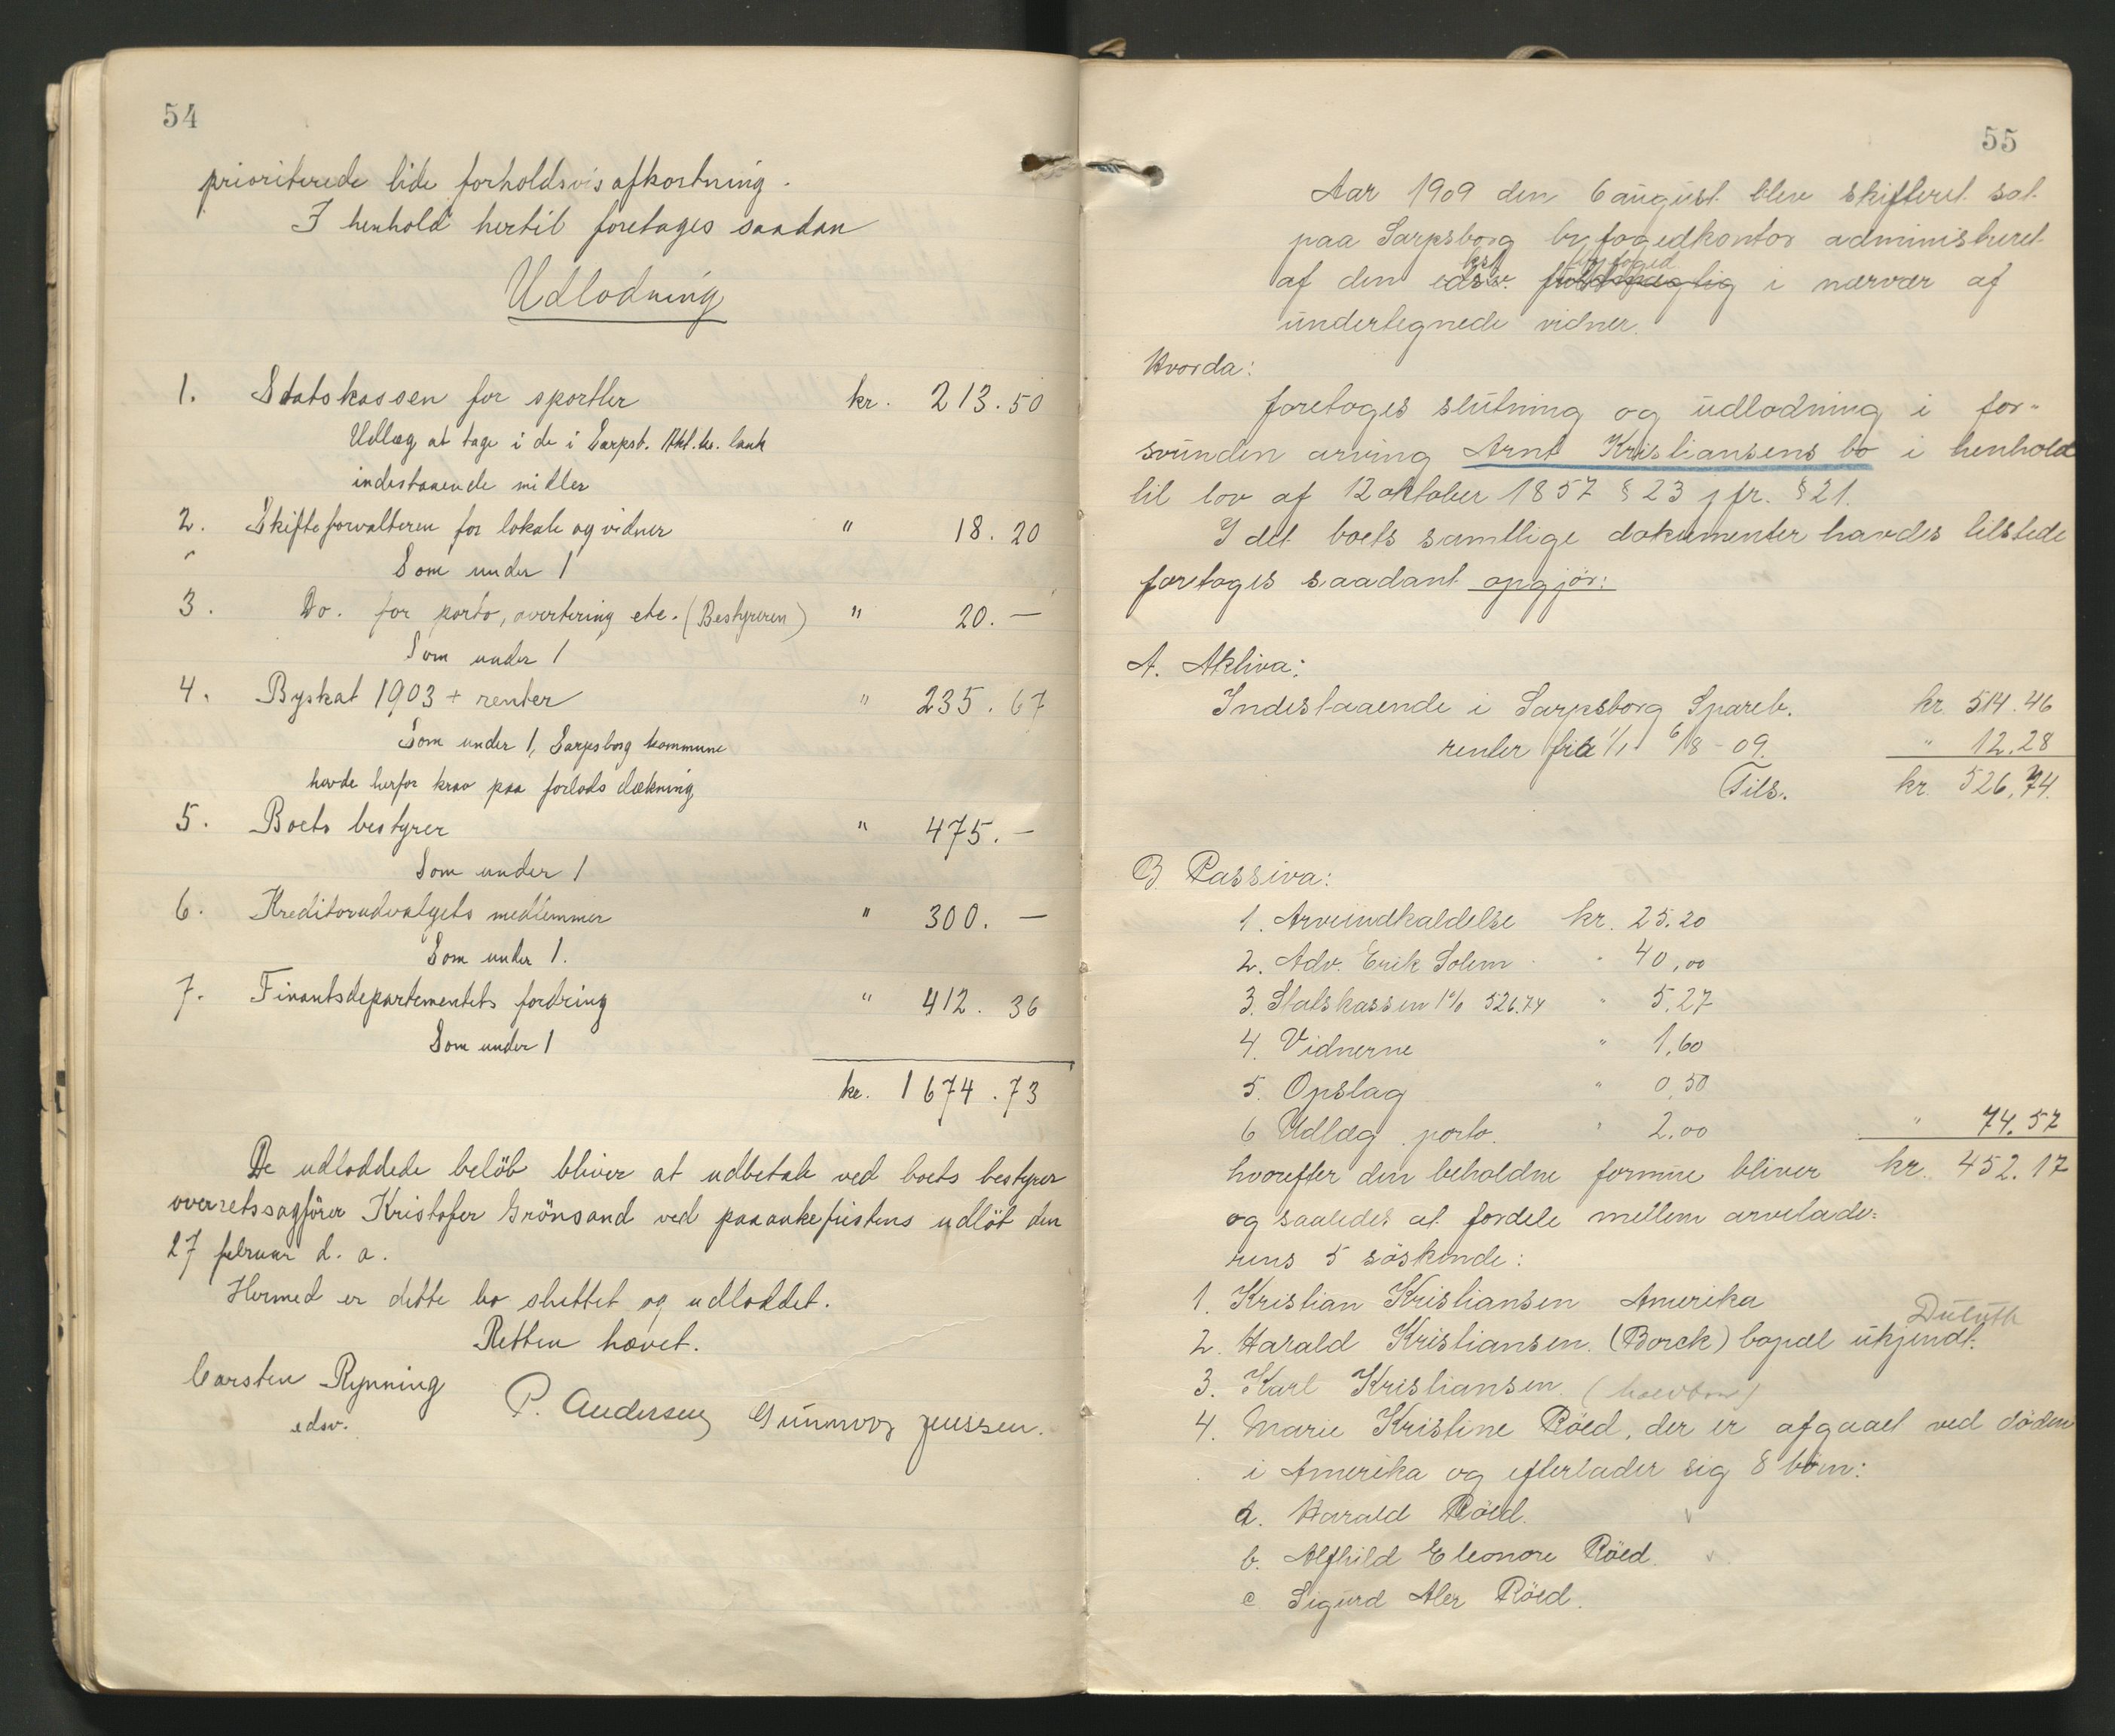 54
prioriterede lide forholdsvis afkortning.
I henhold hertil foretages saadan
Udlodning
1. Statskassen for sportler kr. 213.50
Udlæg at tage i de i Sarpsb. Akt. kr. bank
indestaaende midler
2. Skifteforvalteren for lokale og vidner " 18.20
Som under 1
3. Do. for porto, avertering etc. (Bestyreren) " 20.—
Som under 1
4. Byskat 1903 + renter " 235.67
Som under 1, Sarpsborg kommune
havde herfor krav paa forlods dækning
5. Boets bestyrer " 475.—
Som under 1
6. Kreditorudvalgets medlemmer " 300.—
Som under 1.
7. Finantsdepartementets fordring " 412.36
Som under 1
kr. 1674.73
De udloddede beløb bliver at udbetale ved boets bestyrer
overretssagfører Kristofer Grönsand ved paaankefristens udløb den
27 februar d. a.
Hermed er dette bo sluttet og udloddet.
Retten hævet.
Carsten Rynning
edsv.
P. Andersen Gunnvor Jenssen.
55
Aar 1909 den 6 august blev skifteret sat
paa Sarpsborg byfogedkontor administreret
kst. byfoged
af den edsv. fuldmægtig i nærvær af
undertegnede vidner.
Hvorda:
foretoges slutning og udlodning i for-
svunden arving Arnt Kristiansens bo i henhold
til lov af 12 oktober 1857 § 23 jfr. § 21.
I det boets samtlige dokumenter havdes tilstede
foretoges saadant opgjør:
A. Aktiva:
Indestaaende i Sarpsborg Spareb. kr. 514.46
renter fra 1/1 6/8 - 09. " 12.28
Tils. kr. 526,74.
B. Passiva:
1. Arveindkaldelse kr. 25.20
2. Adv. Erik Solem " 40,00
3. Statskassen 1% 526.74 " 5.27
4. Vidnerne " 1,60
5. Opslag " 0,50
6 Udlæg porto. " 2.00 " 74.57
hvorefter den beholdne formue bliver kr. 452.17
og saaledes at fordele mellem arvelade=
rens 5 söskende:
1. Kristian Kristiansen Amerika
Duluth
2. Harald Kristiansen. (Borck) bopæl ukjendt.
3. Karl Kristiansen.
4. Marie Kristine Röed, der er afgaaet ved döden
i Amerika og efterlader sig 8 börn:
a. Harald Röed.
b. Alfhild Eleonore Röed.
c Sigurd Alex Röed.